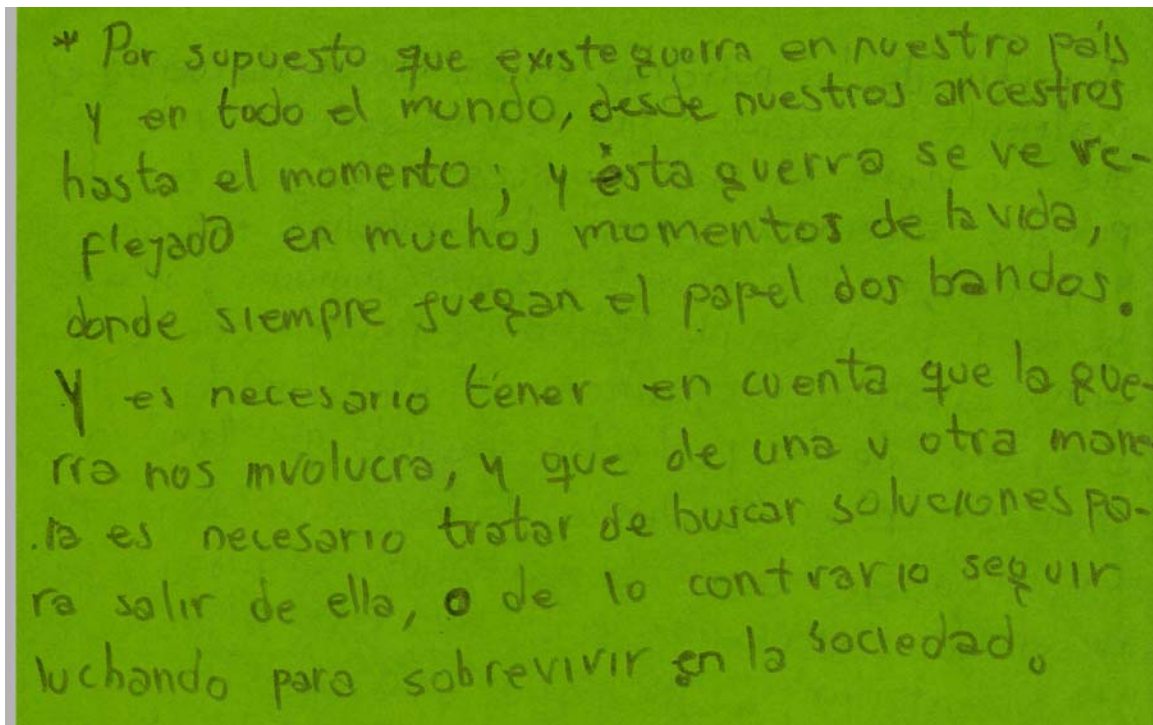 * Por supuesto que existe guerra en nuestro país
y en todo el mundo, desde nuestros ancestros
hasta el momento; y ésta guerra se ve re-
flejado en muchos momentos de la vida,
donde siempre juegan el papel dos bandos.
Y es necesario tener en cuenta que la gue-
rra nos involucra, y que de una u otra mane
ra es necesario tratar de buscar soluciones pa-
ra salir de ella, o de lo contrario seguir
luchando para sobrevivir en la sociedad.